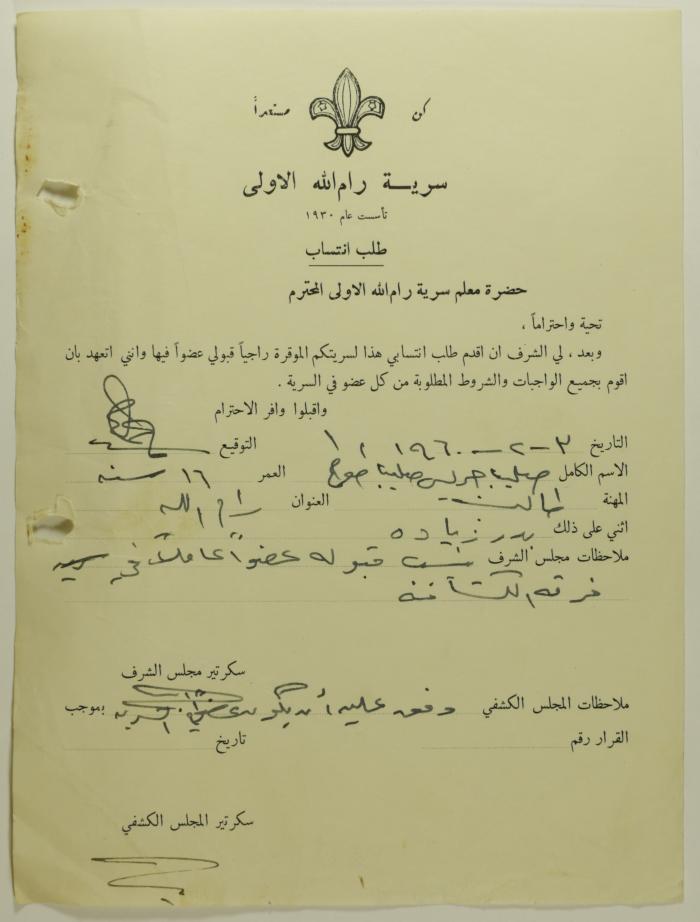 كن مستعداً
سرية رام الله الاولى
تأسست عام ١٩٣٠
طلب انتساب
حضرة معلم سرية رام الله الاولى المحترم
تحية واحتراماً ،
وبعد ، لي الشرف ان اقدم طلب انتسابي هذا لسريتكم الموقرة راجياً قبولي عضواً فيها وانني اتعهد بان
اقوم بجميع الواجبات والشروط المطلوبة من كل عضو في السرية .
واقبلوا وافر الاحترام
التاريخ ٣-٢-١٩٦٠ التوقيع
الاسم الكامل صليبا جريس صليبا العمر ١٦ سنه
المهنة طالب العنوان رام الله
اثني على ذلك بدر زياده
ملاحظات مجلس الشرف قبوله عضواً عاملاً في
فرقة الكشافة
سكرتير مجلس الشرف
ملاحظات المجلس الكشفي وفق عليه أن يكون بموجب
القرار رقم تاريخ
سكرتير المجلس الكشفي